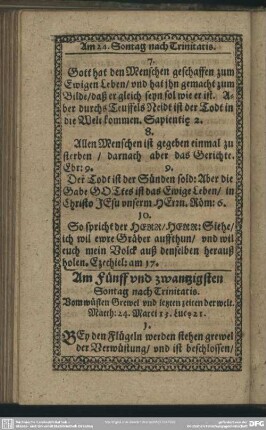 Am 24. Sontag nach Trinitatis.
7.
Gott hat den Menschen geschaffen zum
Ewigen Leben/ vnd hat jhn gemacht zum
Bilde/ daß er gleich seyn sol wie er ist. A-
ber durchs Teuffels Neidt ist der Todt in
die Welt kommen. Sapientiæ 2.
8.
Allen Menschen ist gegeben einmal zu
sterben / darnach aber das Gerichte.
Ebr: 9.
9.
Der Todt ist der Sünden sold: Aber die
Gabe GOttes ist das Ewige Leben/ in
Christo JEsu vnserm HErrn. Röm: 6.
10.
So spricht der HERR/HERR: Siehe/
ich wil ewre Gräber auffthun/ vnd wil
euch mein Volck auß denselben herauß
holen. Ezechiel: am 37.
Am Fünff vnd zwantzigsten
Sontag nach Trinitatis.
Vom wüsten Grewel vnd letzten zeiten der welt.
Matth: 24. Marci 13. Luc: 21.
1.
BEy den Flügeln werden stehen grewel
der Verwüstung/ vnd ist beschlossen/